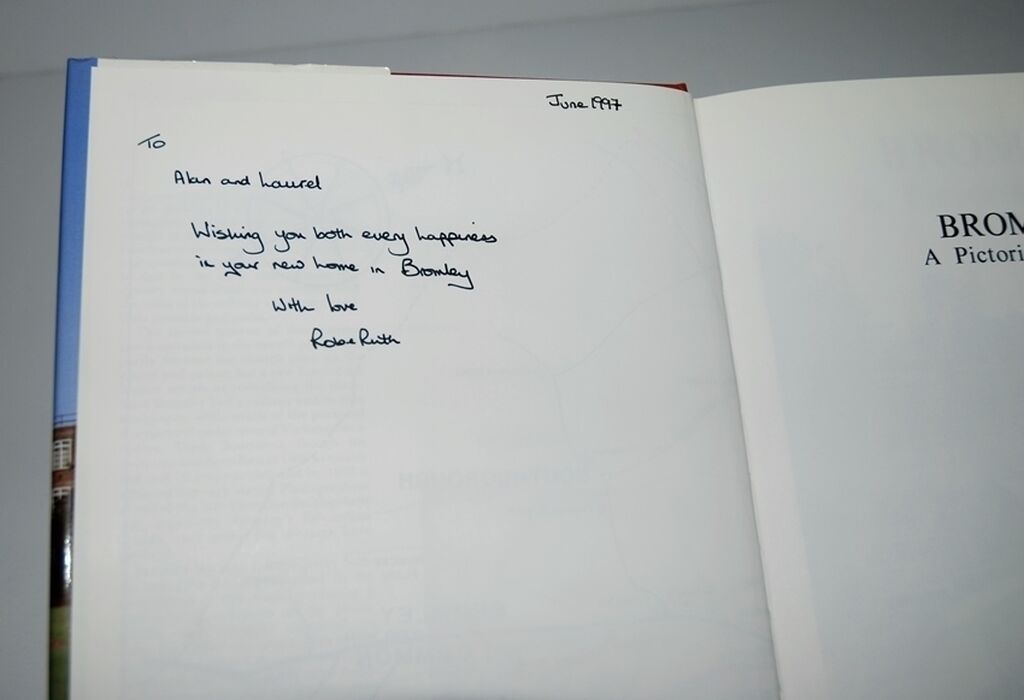 June 1997
To
Alan and Laurel
Wishing you both every happiness
in your new home in Bromley
With love
Rob & Ruth
BROM
A Pictori